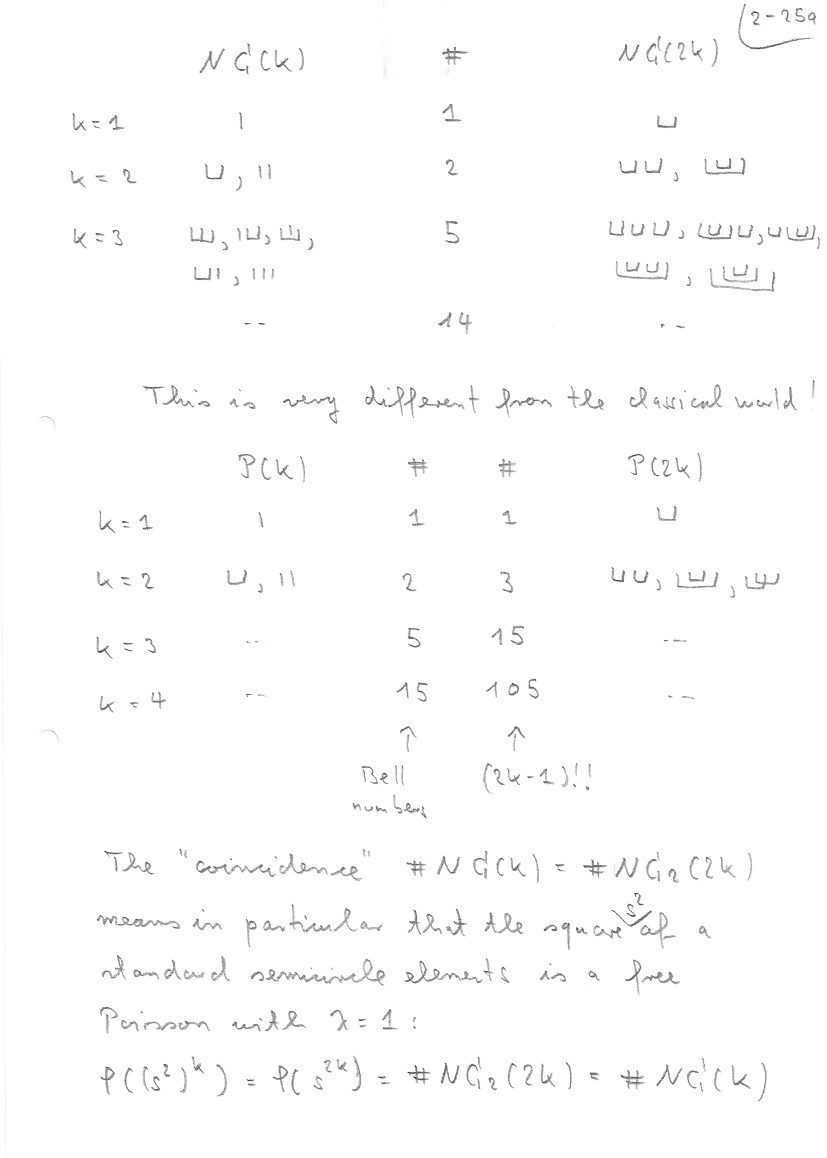 2-25a
NC(k) # NC(2k)
k=1 | 1 ⊔
k=2 ⊔, || 2 ⊔⊔,
k=3 5 ⊔⊔⊔,
⊔|, |||
-- 14 --
This is very different from the classical world!
P(k) # # P(2k)
k=1 | 1 1 ⊔
k=2 ⊔, || 2 3 ⊔⊔,
k=3 -- 5 15 --
k=4 -- 15 105 --
↑ ↑
Bell (2k-1)!!
numbers
The "coincidence" #NC(k) = #NC₂(2k)
means in particular that the square s² of a
standard semicircle elements is a free
Poisson with λ=1:
φ((s²)ᵏ) = φ(s²ᵏ) = #NC₂(2k) = #NC(k)